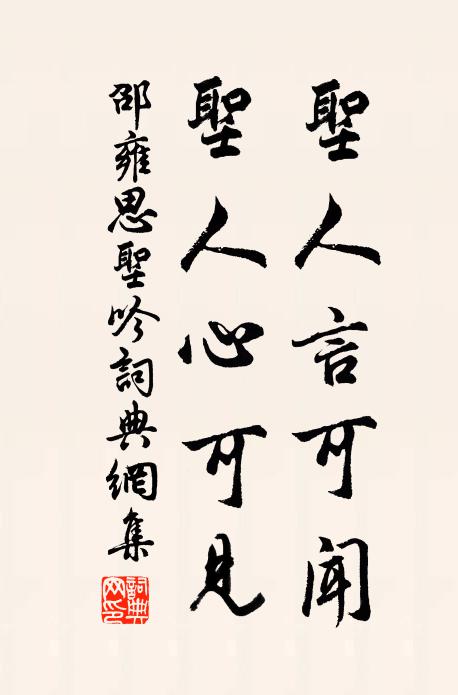 聖人言可聞
聖人心可見
邵雍思聖吟詞典網集
詞典网印